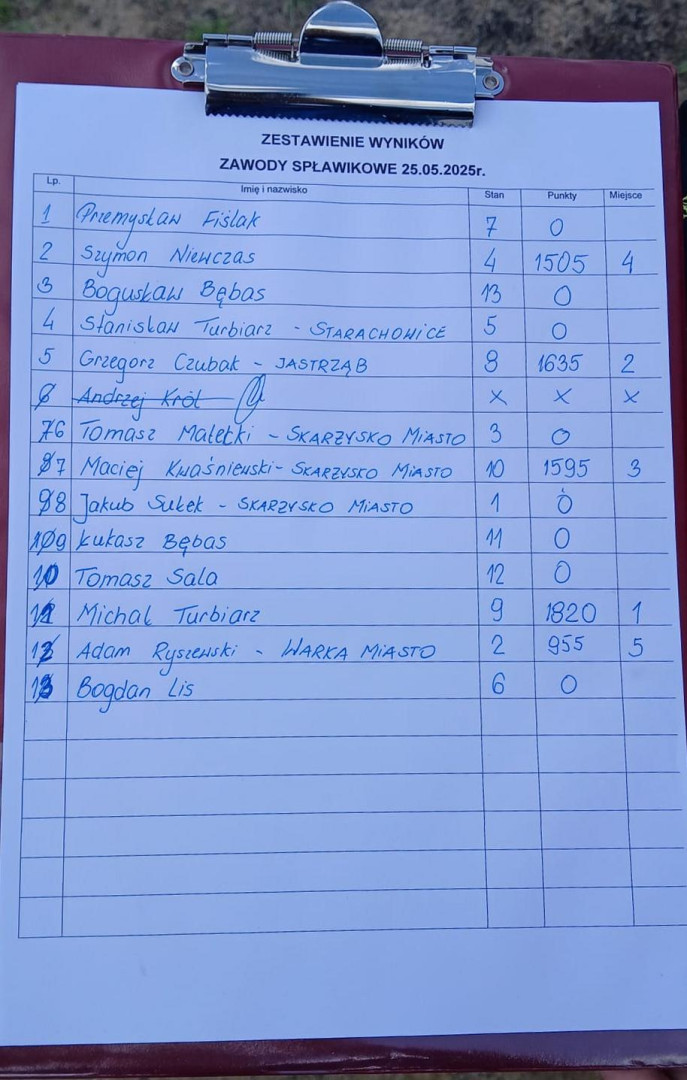 ZESTAWIENIE WYNIKÓW
ZAWODY SPŁAWIKOWE 25.05.2025r.
Lp. Imię i nazwisko Stan Punkty Miejsce
1 Przemysław Fiślak 7 0
2 Szymon Niewczas 4 1505 4
3 Bogusław Bębas 13 0
4 Stanisław Turbiarz - STARACHOWICE 5 0
5 Grzegorz Czubak - JASTRZĄB 8 1635 2
6 Andrzej Król x x x
6 Tomasz Małecki - SKARŻYSKO MIASTO 3 0
7 Maciej Kwaśniewski - SKARŻYSKO MIASTO 10 1595 3
8 Jakub Sułek - SKARŻYSKO MIASTO 1 0
9 Łukasz Bębas 11 0
10 Tomasz Sala 12 0
11 Michał Turbiarz 9 1820 1
12 Adam Ryszewski - WARKA MIASTO 2 955 5
13 Bogdan Lis 6 0